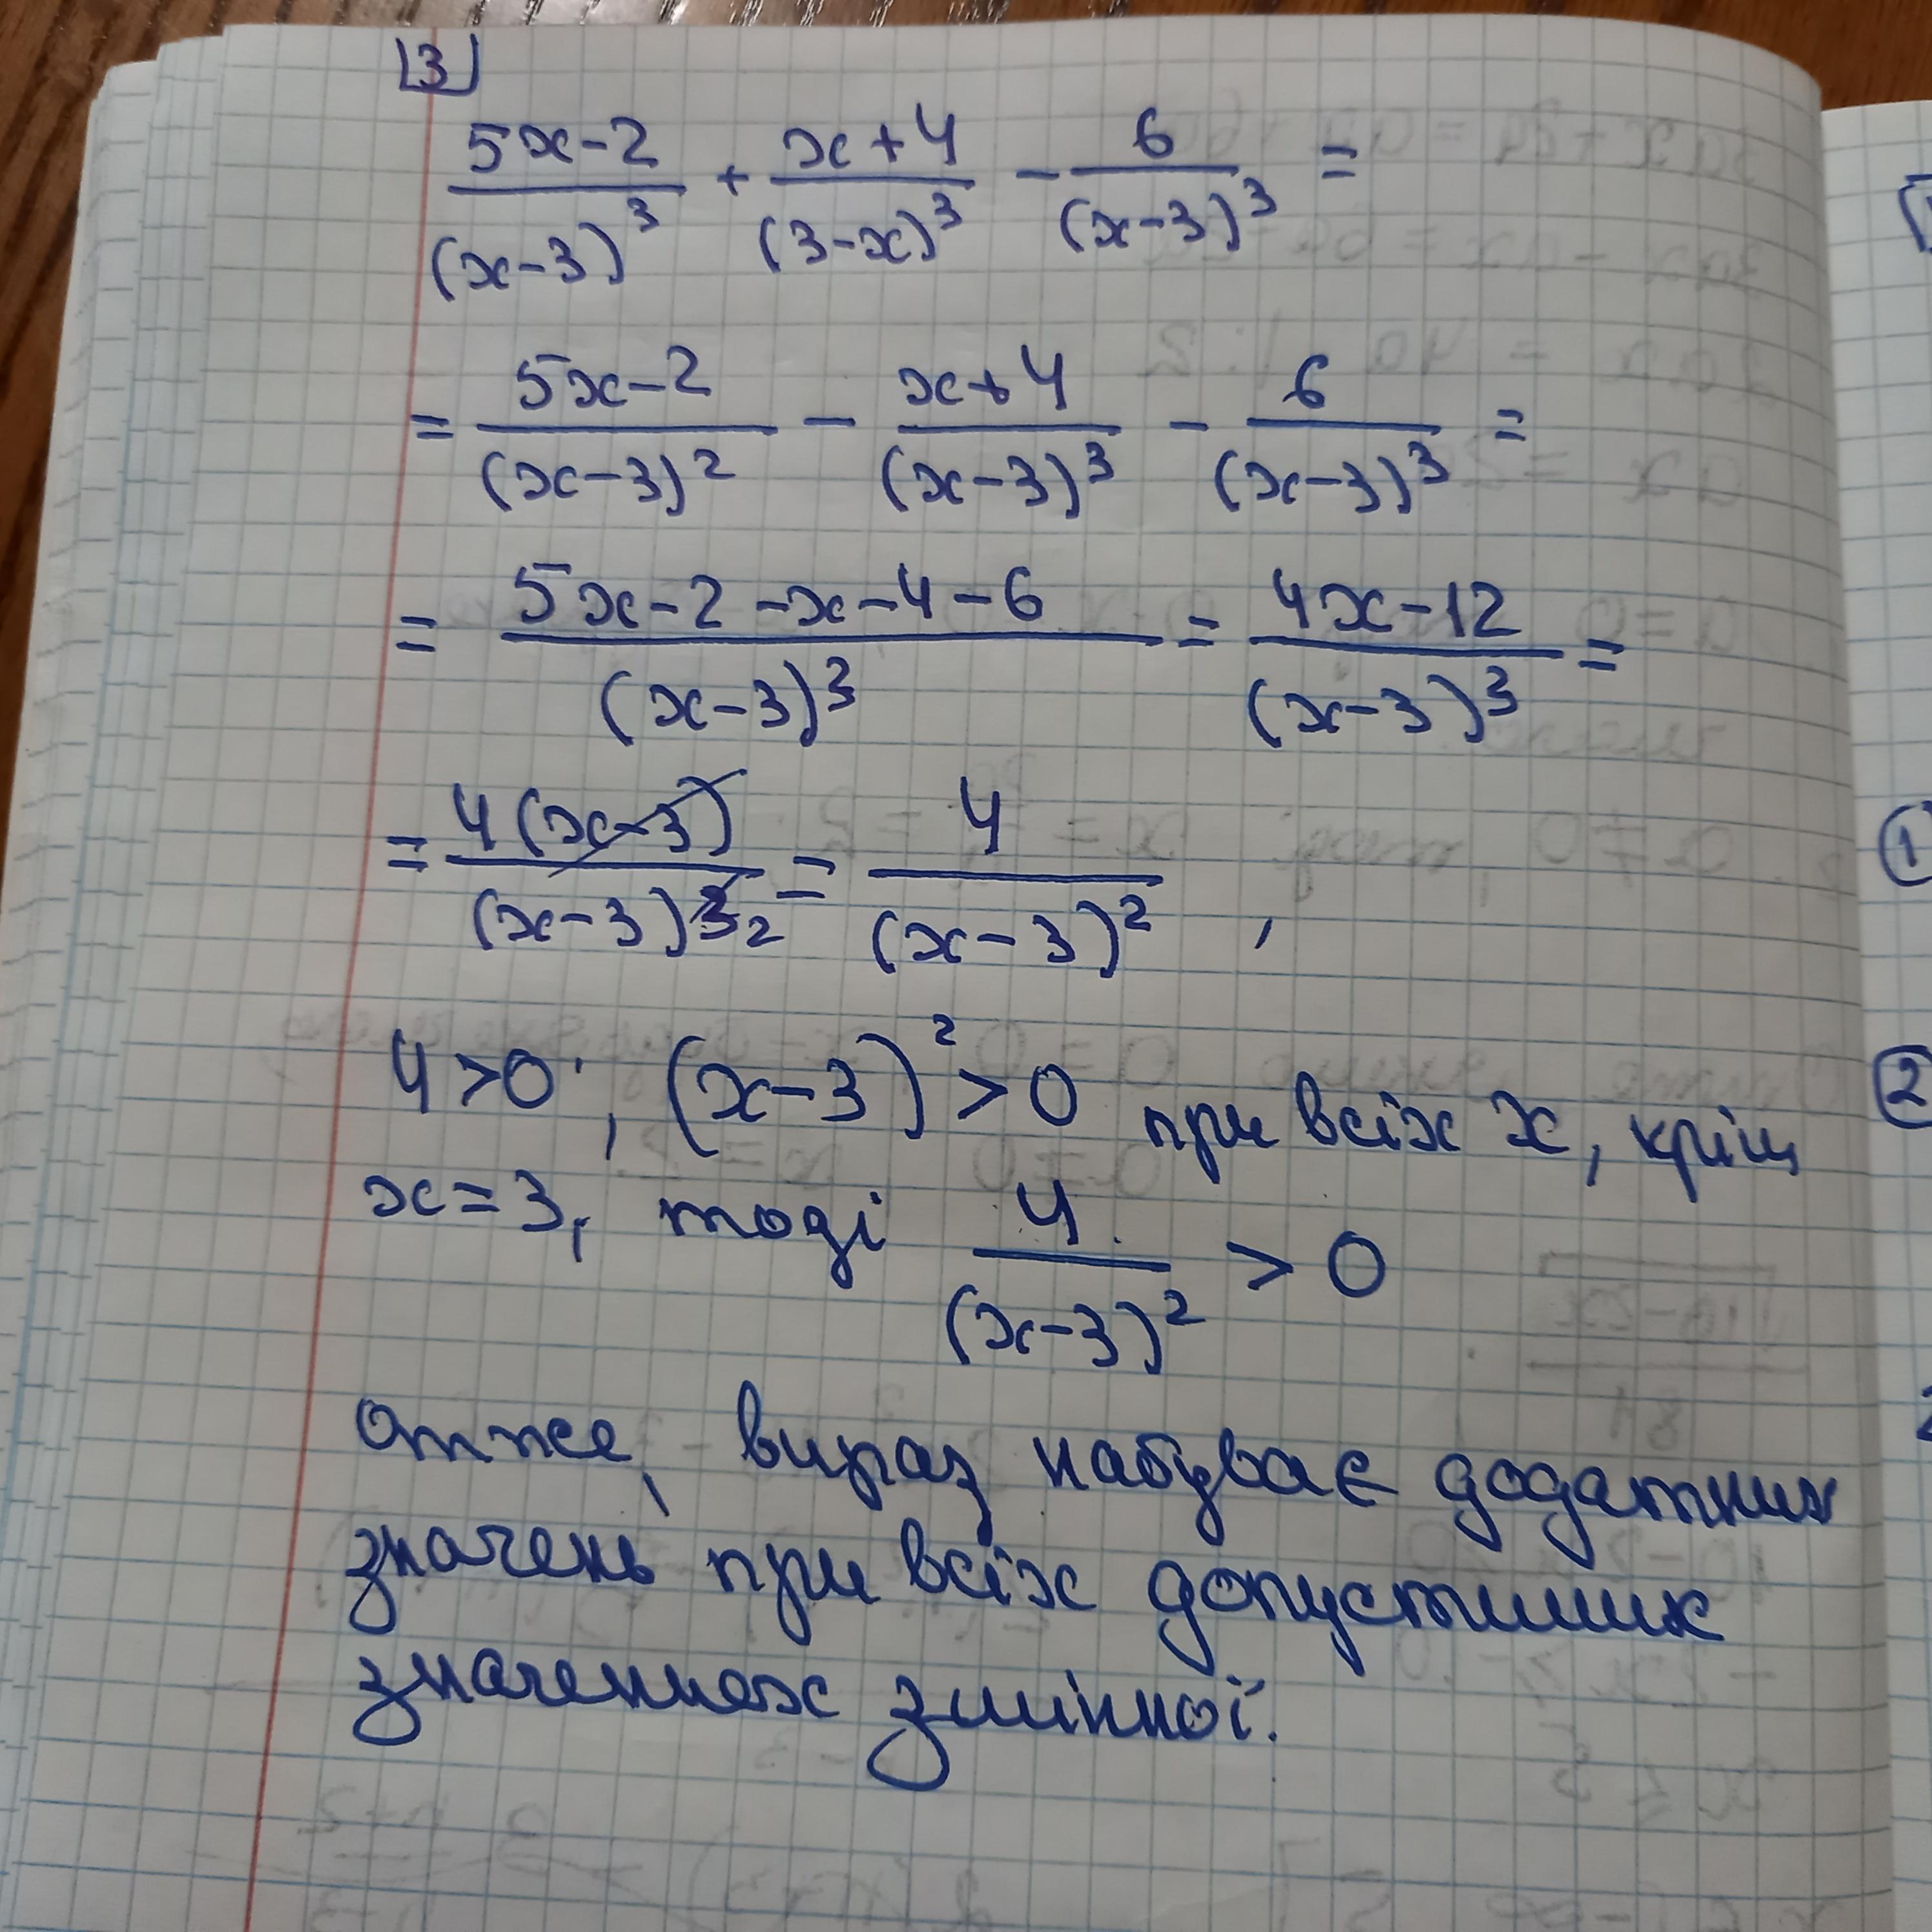 3
5x-2/(x-3)³ + x+4/(3-x)³ - 6/(x-3)³ =
= 5x-2/(x-3)² - x+4/(x-3)³ - 6/(x-3)³ =
= 5x-2-x-4-6/(x-3)³ = 4x-12/(x-3)³ =
= 4(x-3)/(x-3)³ 2 = 4/(x-3)² ,
4>0, (x-3)²>0 при всіх x, крім
x=3, тоді 4/(x-3)² > 0
Отже, вираз набуває додатних
значень при всіх допустимих
значеннях змінної.
1
2